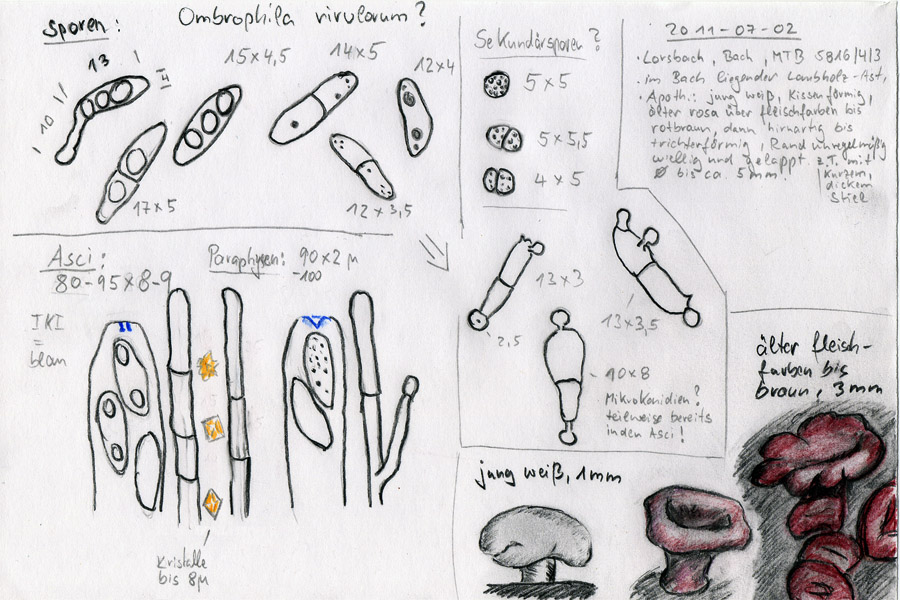 Ombrophila rivulorum?
Sporen:
13
4
10
15x4,5
14x5
12x4
17x5
12x3,5
Sekundärsporen?
5x5
5x5,5
4x5
2011-07-02
·Lorsbach, Bach, MTB 5816/4/3
·im Bach liegender Laubholz-Ast,
·Apoth.: jung weiß, Kissenförmig,
älter rosa über fleischfarben bis
rotbraun, dann hirnartig bis
trichterförmig, Rand unregelmäßig
wellig und gelappt. z.T. mit
kurzem,
dickem
Stiel
Ø bis ca. 5mm.
Asci:
80-95x8-9
IKI
=
blau
Paraphysen: 90x2µ
-100
Kristalle
bis 8µ
13x3
2,5
13x3,5
10x8
Mikrokonidien?
teilweise bereits
in den Asci!
jung weiß, 1mm
älter fleisch-
farben bis
braun, 3mm